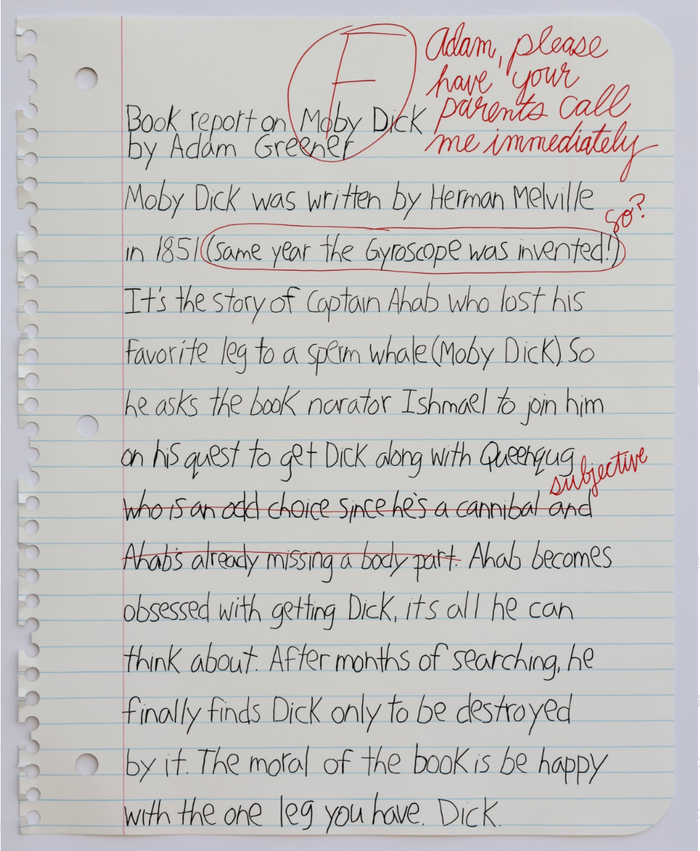 F
Adam, please
have your
parents call
me immediately
Book report on Moby Dick
by Adam Greener
Moby Dick was written by Herman Melville
So?
in 1851 (same year the Gyroscope was invented!)
It's the story of Captain Ahab who lost his
favorite leg to a sperm whale (Moby Dick). So
he asks the book narator Ishmael to join him
on his quest to get Dick along with Queenqug
subjective
who is an odd choice since he's a cannibal and
Ahab's already missing a body part. Ahab becomes
obsessed with getting Dick, its all he can
think about. After months of searching, he
finally finds Dick only to be destroyed
by it. The moral of the book is be happy
with the one leg you have. Dick.